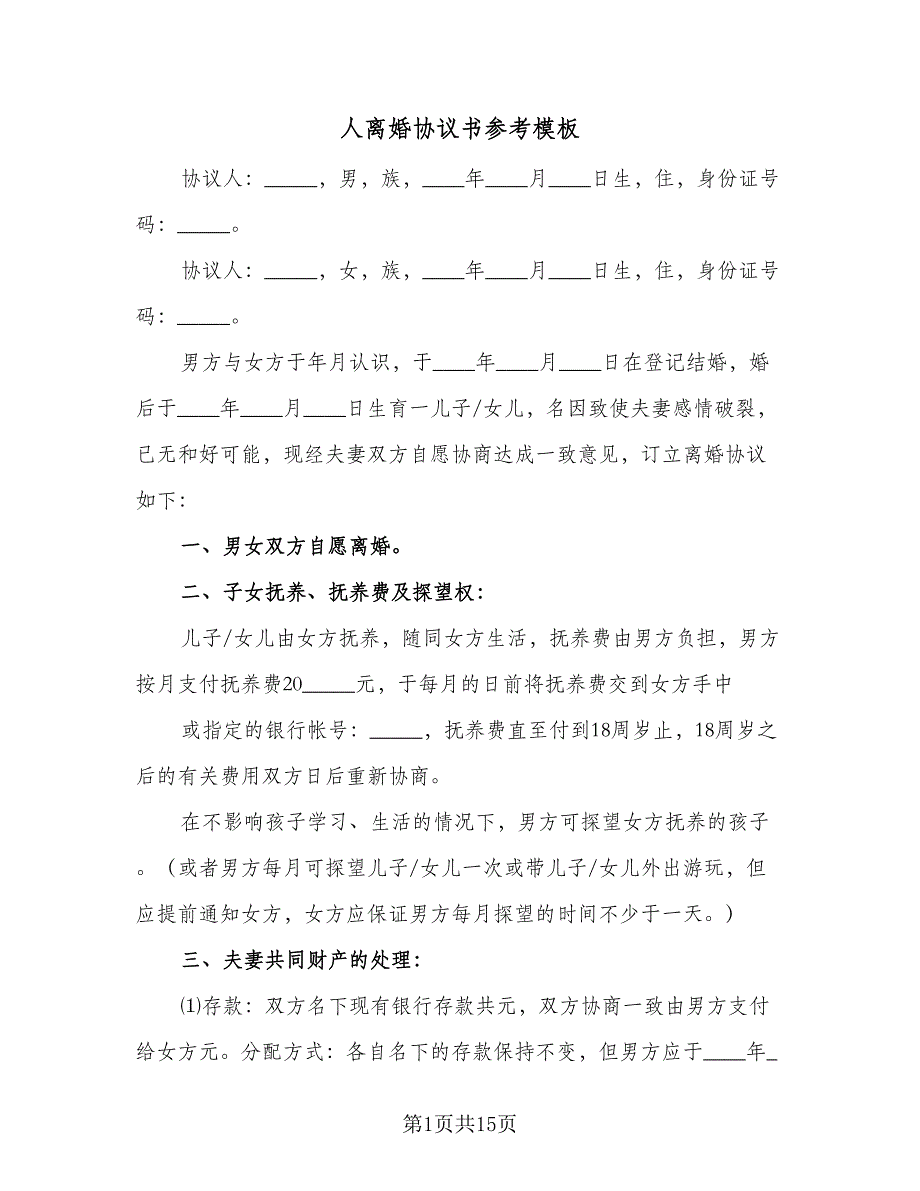 人离婚协议书参考模板
协议人：_____，男，族，____年____月____日生，住，身份证号
码：_____。
协议人：_____，女，族，____年____月____日生，住，身份证号
码：_____。
男方与女方于年月认识，于____年____月____日在登记结婚，婚
后于____年____月____日生育一儿子/女儿，名因致使夫妻感情破裂，
已无和好可能，现经夫妻双方自愿协商达成一致意见，订立离婚协议
如下：
一、男女双方自愿离婚。
二、子女抚养、抚养费及探望权：
儿子/女儿由女方抚养，随同女方生活，抚养费由男方负担，男方
按月支付抚养费20_____元，于每月的日前将抚养费交到女方手中
或指定的银行帐号：_____，抚养费直至付到18周岁止，18周岁之
后的有关费用双方日后重新协商。
在不影响孩子学习、生活的情况下，男方可探望女方抚养的孩子
。（或者男方每月可探望儿子/女儿一次或带儿子/女儿外出游玩，但
应提前通知女方，女方应保证男方每月探望的时间不少于一天。）
三、夫妻共同财产的处理：
⑴存款：双方名下现有银行存款共元，双方协商一致由男方支付
给女方元。分配方式：各自名下的存款保持不变，但男方应于____年_
第1页共15页